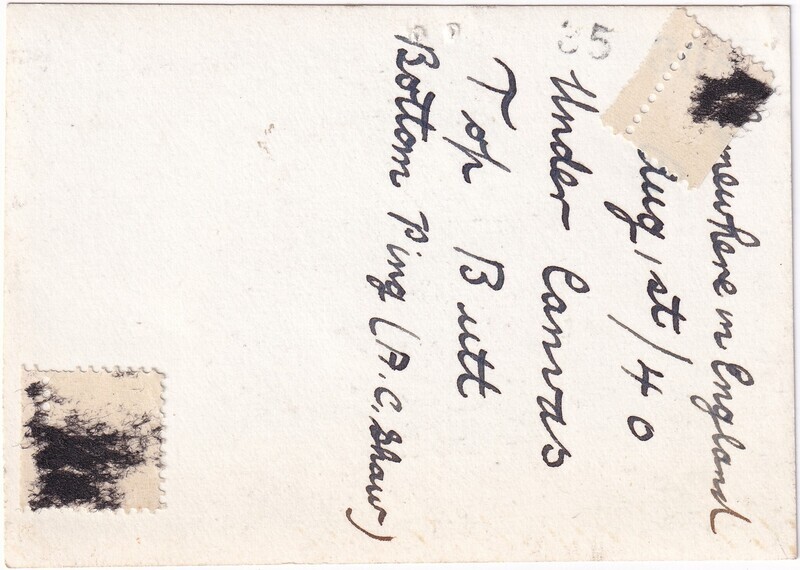 mewhere in England
Aug, 1st/40
Under Canvas
Top Butt
Bottom Ping (A.C. Shaw)
35